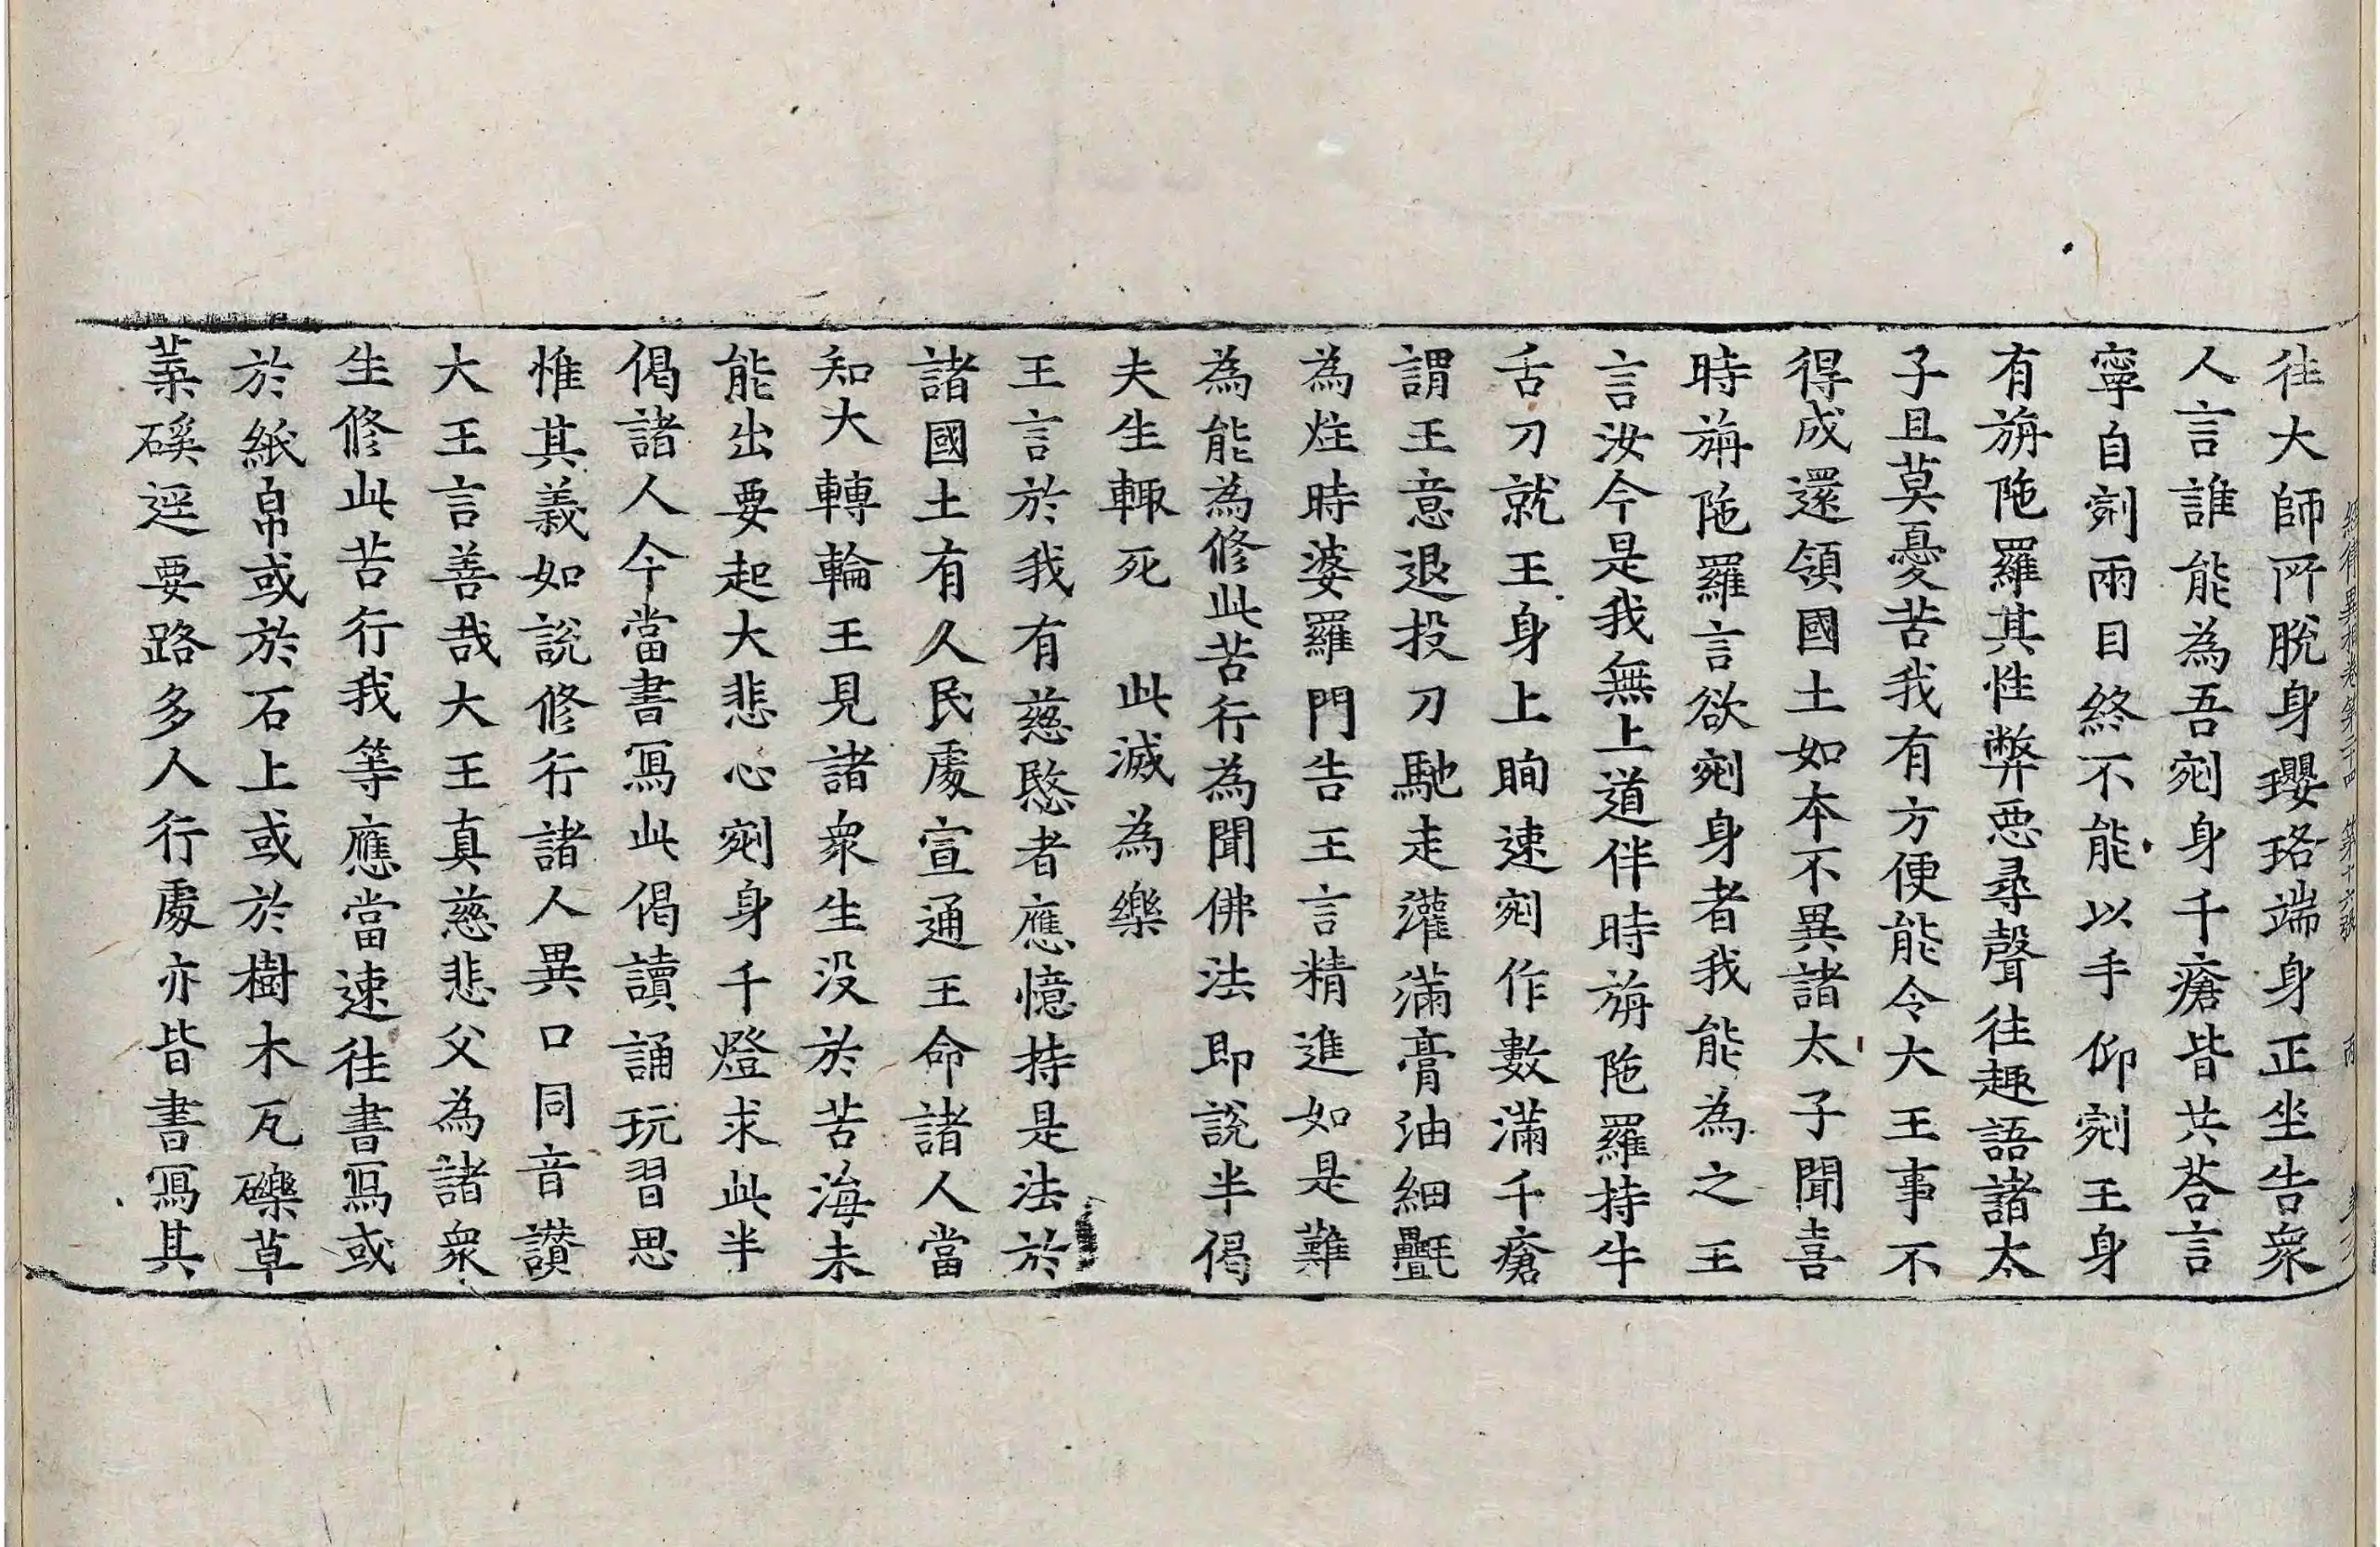 經律異相卷第二十四 第十六張 丙
往大師所脫身瓔珞端身正坐告衆
人言誰能為吾剜身千瘡皆共荅言
寧自剜兩目終不能以手仰剜王身
有旃陁羅其性弊惡尋聲往趣語諸太
子且莫憂苦我有方便能令大王事不
得成還領國土如本不異諸太子聞喜
時旃陁羅言欲剜身者我能為之王
言汝今是我無上道伴時旃陁羅持牛
舌刀就王身上眴速剜作數滿千瘡
謂王意退投刀馳走灌滿膏油細㲲
為炷時婆羅門告王言精進如是難
為能為修此苦行為聞佛法即說半偈
夫生輙死　此滅為樂
王言於我有慈愍者應憶持是法於
諸國土有人民處宣通王命諸人當
知大轉輪王見諸衆生没於苦海未
能出要起大悲心剜身千燈求此半
偈諸人今當書寫此偈讀誦玩習思
惟其義如說修行諸人異口同音讃
大王言善哉大王真慈悲父為諸衆
生修此苦行我等應當速往書寫或
於紙帛或於石上或於樹木瓦礫草
葉磎逕要路多人行處亦皆書寫其